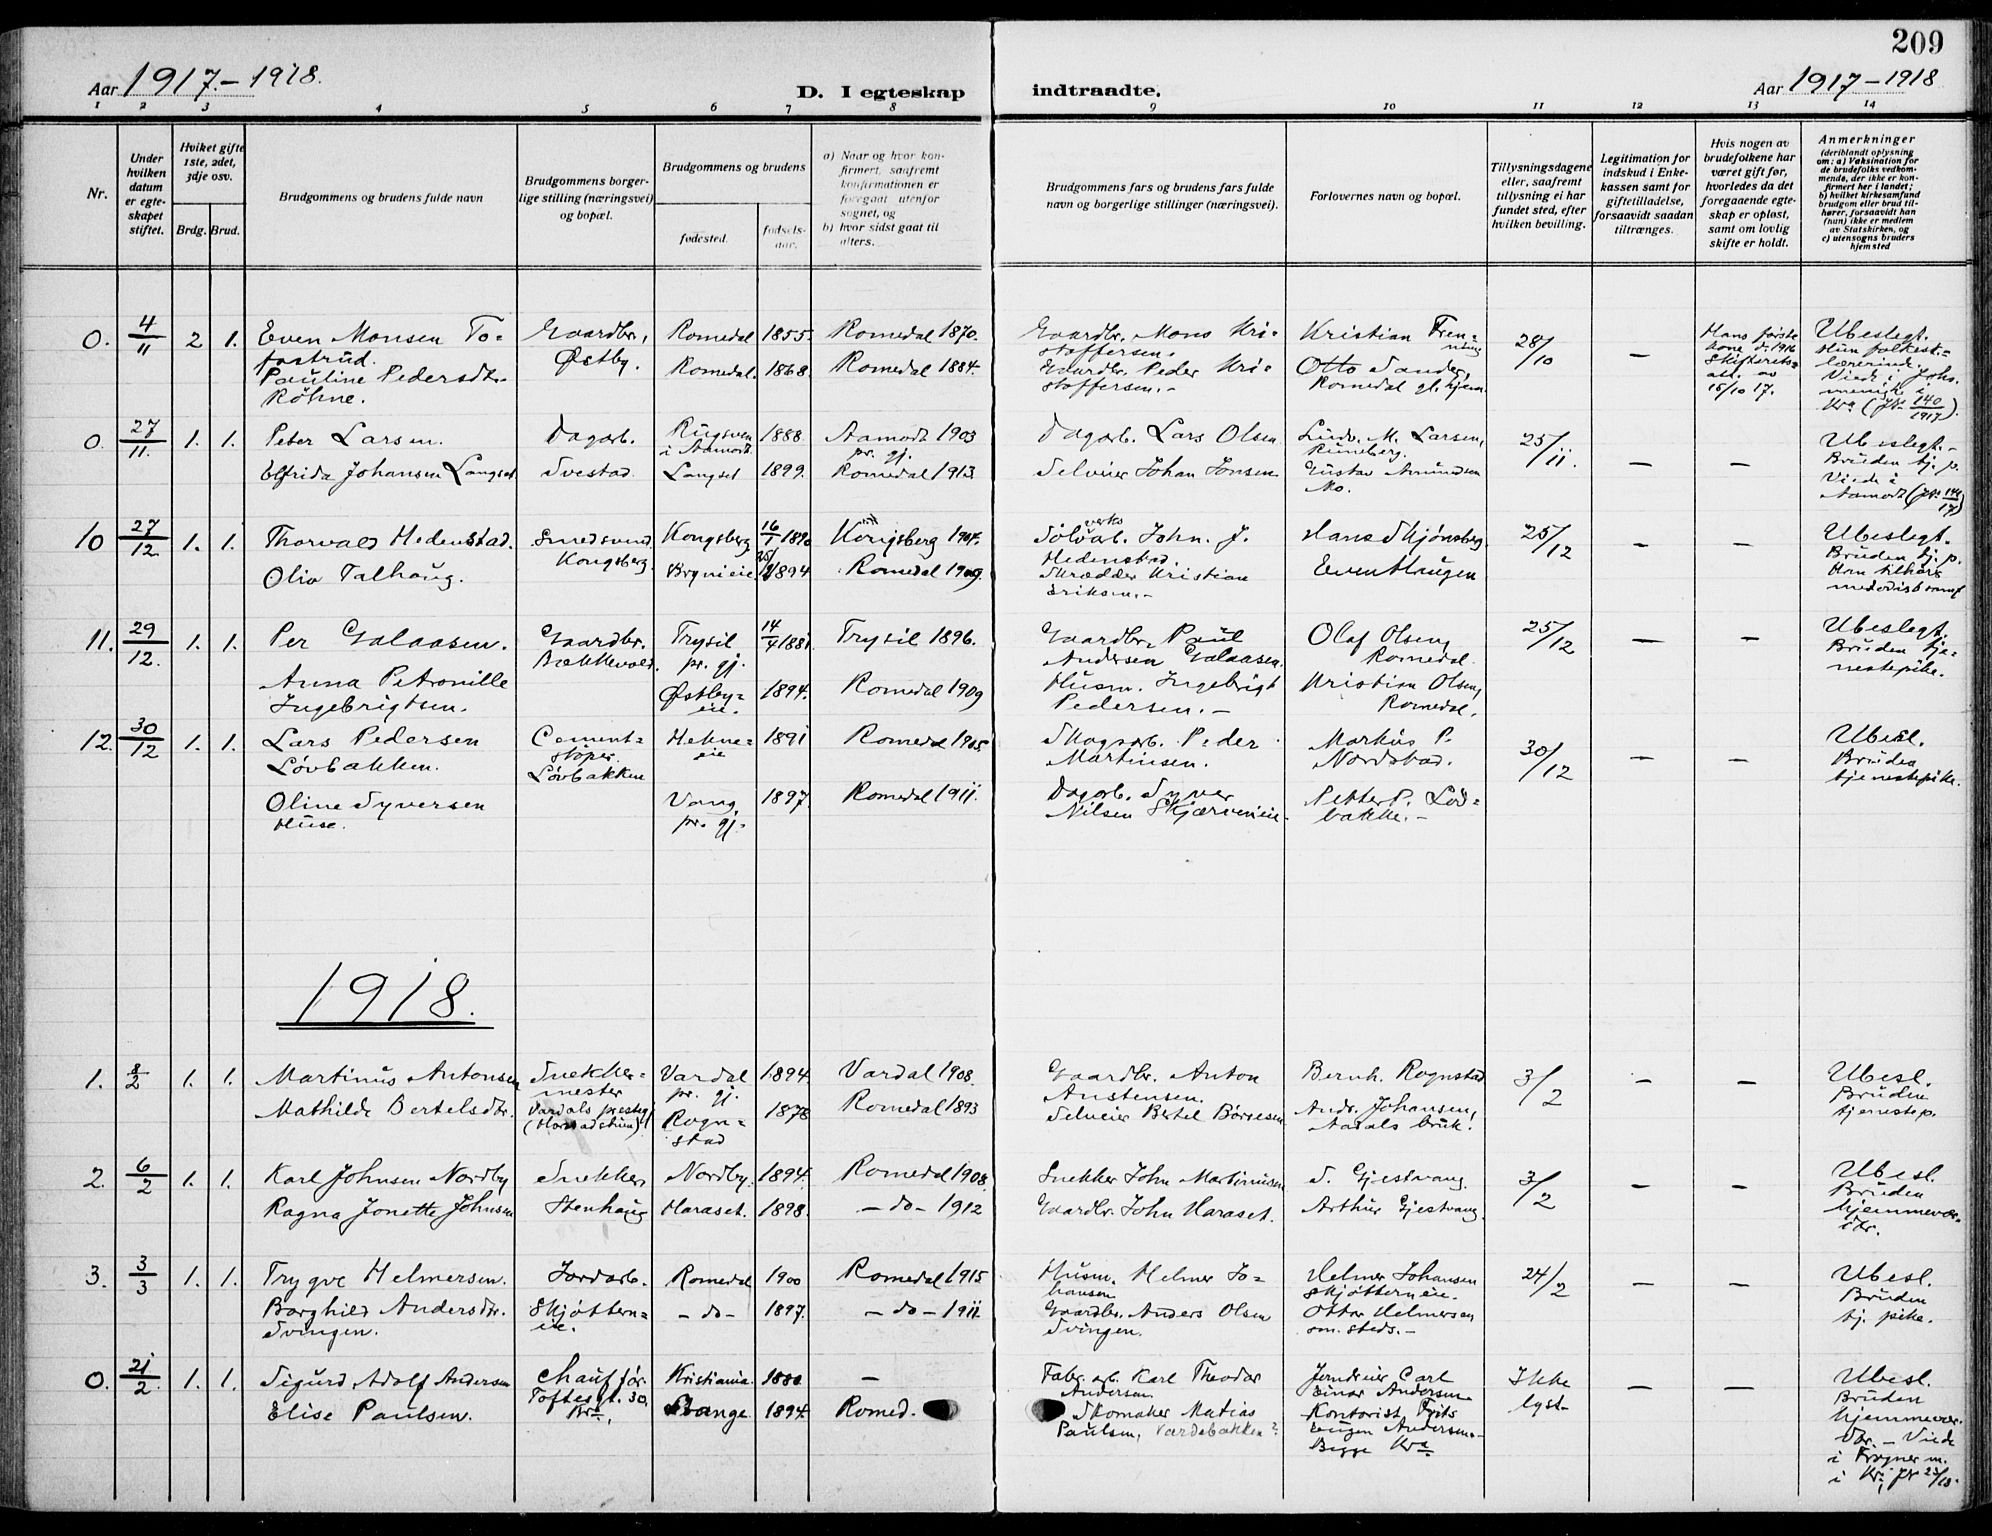 209
Aar 1917.-1918.
D. I egteskap
indtraadte.
Aar 1917-1918
1 2 3 4 5 6 7 8 9 10 11 12 13 14
Nr.
Under hvilken datum er egteskapet stiftet.
Hviket gifte 1ste, 2det, 3dje osv.
Brdg. Brud.
Brudgommens og brudens fulde navn
Brudgommens borgerlige stilling (næringsvei) og bopæl.
Brudgommens og brudens
fødested.
fødselsaar.
a) Naar og hvor konfirmert, saafremt konfirmationen er foregaat utenfor sognet, og
b) hvor sidst gaat til alters.
Brudgommens fars og brudens fars fulde navn og borgerlige stillinger (næringsvei).
Forlovernes navn og bopæl.
Tillysningsdagene eller, saafremt tillysning ei har fundet sted, efter hvilken bevilling.
Legitimation for indskud i Enkekassen samt for giftetilladelse, forsaavidt saadan tiltrænges.
Hvis nogen av brudefolkene har været gift før, hvorledes da det foregaaende egteskap er opløst, samt om lovlig skifte er holdt.
Anmerkninger
(deriblandt oplysning om: a) Vaksination for de brudefolks vedkommende, der ikke er konfirmert her i landet;
b) hvilket kirkesamfund brudgom eller brud tilhører, forsaavidt han (hun) ikke er medlem av Statskirken, og
c) utensogns bruders hjemsted
0. 4/11 2 1. Even Monsen To- Gaardbr., Romedal 1855. Romedal 1870. Gaardbr. Mons Kri- Kristian Fren- 28/10 — Hans første Ubeslegt.
fastrud. Østby. stoffersen. ning kone d. 1916 Hun folkesk.-
Pauline Pedersdt. Romedal. 1868. Romedal 1884. Gaardbr. Peder Kri- Otto Sander, Skifterets- lærerinde
Röhne. stoffersen. Romedal gl. hjem. att. av Viede i Johs.
15/10 17. menigh. i
Kra (Jr. 140/1917).
0. 27/11. 1. 1. Peter Larsen. Dagarb. Rugsveen 1888. Aamodt 1903 Dagarb. Lars Olsen Ludv. M. Larsen, 25/11. — — Ubeslegt.
i Aamodt pr. gj. Runeberg. Bruden tj. p.
Elfrida Johansen Langset Svestad. Langset 1899. Romedal 1913. Selveier Johan Jonsen Gustav Amundsen Viede i
Mo. Aamodt
10 27/12 1. 1. Thorvald Hedenstad. Smedsvend Kongsberg 16/1 1890 Kongsberg 1904. Sølvverksarb. John. J. Hans Skjønsberg 25/12 — — Ubeslegt.
Kongsberg. Hedenstad. Bruden tj. p.
Olia Talhaug. Brynieie 1894 Romedal 1909. Skrædder Kristian Even Haugen Han tilhører
Eriksen. metodistsamf
11. 29/12. 1. 1. Per Galaasen. Gaardbr. Trysil 14/4 1881 Trysil 1896. Gaardbr. Paul Olaf Olsen, 25/12 — — Ubeslegt.
Bækkevold. pr. gj. Andersen Galaasen. Romedal. Bruden tje-
Anna Petronille Østby- 1894. Romedal 1909 Husm. Ingebrigt Kristian Olsen, nestepike.
Ingebrigtsen. eie. Pedersen. Romedal.
12. 30/12 1. 1. Lars Pedersen Cement- Hekne- 1891 Romedal 1905. Skogsarb. Peder Markus P. 30/12 — — Ubesl.
Lövbakken. støper. eie Martinsen. Nordstad. Bruden
Lövbakken tjenestepike.
Oline Syversen Vang 1897. Romedal 1911. Dagarb. Syver Petter P. Löv-
Huse. pr. gj. Nilsen Skjærveneie bakke.
1918.
1. 8/2 1. 1. Martinus Antonsen Snekker- Vardal 1894. Vardal 1908. Gaardbr. Anton Bernh. Rognstad 3/2 — — Ubesl.
mester pr. gj. Austensen. Bruden
Mathilde Bertelsdtr. Vardals prestegj. Rogn- 1878 Romedal 1893 Selveier Bertel Börresen Andr. Johansen, tjenestep.
stad Aadals bruk.
2. 6/2 1. 1. Karl Johnsen Nordby Snekker, Nordby. 1894. Romedal 1908. Snekker John Martinusen S. Gjestvang. 3/2 — — Ubesl.
Ragna Jonette Johnsen Stenhaug Haraset. 1898. — do — 1912 Gaardbr. John Haraset. Arthur Gjestvang. Bruden
hjemmevæ-
rdr.
3. 3/3 1. 1. Trygve Helmersen. Jordarb. Romedal 1900 Romedal 1915 Husm. Helmer Jo- Helmer Johansen 24/2 — — Ubesl.
hansen Skjøtterneie. Bruden
Borghild Andersdtr. Skjøttern- — do — 1897. — do — 1911. Gaardbr. Anders Olsen Ottar Helmersen tj. pike.
Svingen. eie. Svingen. sm. steds.
0. 21/2. 1. 1. Sigurd Adolf Andersen Chauffør. Kristiania. 1888 — Fabr. arb. Karl Theodor Jerndreier Carl Ikke — — Ubesl.
Toftesgt. 30, Andersen. Einar Andersen lyst Bruden
Elise Paulsen. Kra. Stange 1894. Romed. Skomaker Matias Kontorist Frits hjemmevær.
Paulsen, Vardebakken? Eugen Andersen. dtr. — Viede
Bigge Kra i Frogner m.
i Kr., Jr 23/18.